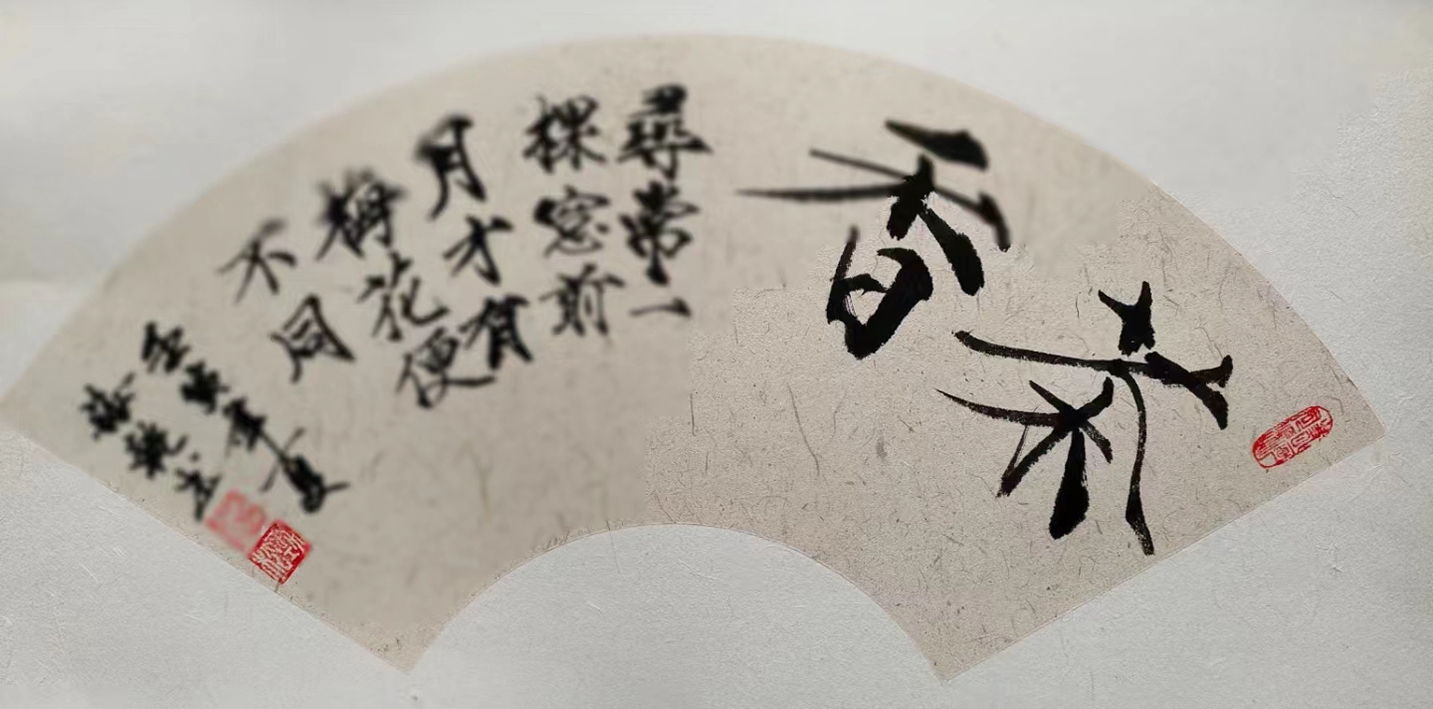 茶香
尋常一
樣窗前
月才有
梅花便
不同
壬寅年夏